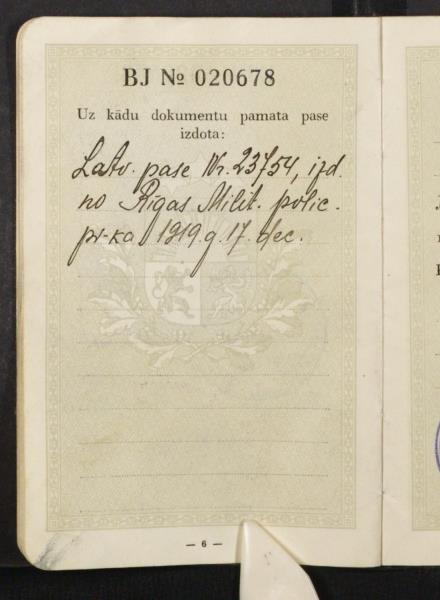 BJ № 020678
Uz kādu dokumentu pamata pase
izdota:
Latv. pase Nr. 23754, izd.
no Rīgas Milit. polic.
pr-ka 1919. g. 17. dec.
— 6 —